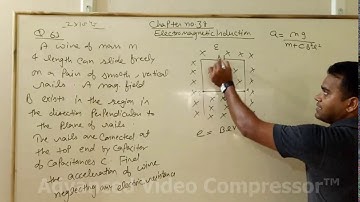 ① 63
Chapter no. 38
Electromagnetic Induction
A wire of mass m
& length can slide freely
on a pair of smooth, vertical
rails. A mag. field
B exists in the region in
the direction perpendicular to
the plane of rails.
The rails are connected at
the top end by capacitor
of capacitances C. Find
the acceleration of wire
neglecting any electric resistance
a = mg
m + CB²l²
e = Bev
Video Compressor™